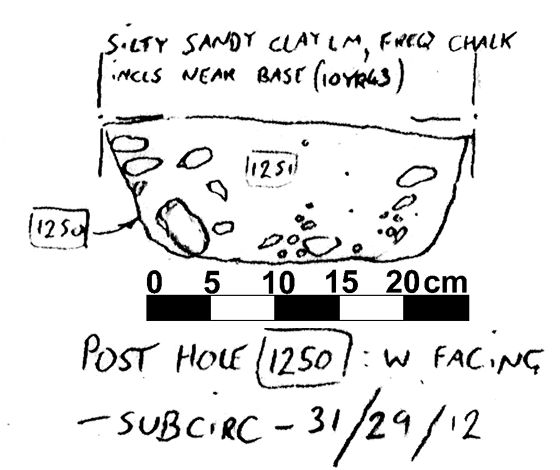 SILTY SANDY CLAY LM, FREQ CHALK
INCLS NEAR BASE (10YR43)
1251
1250
0 5 10 15 20 cm
POST HOLE 1250 : W FACING
- SUBCIRC - 31/29/12